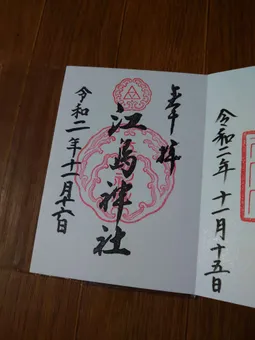 奉拝
江島神社
令和二年十一月廿二日
令和二年十一月十五日